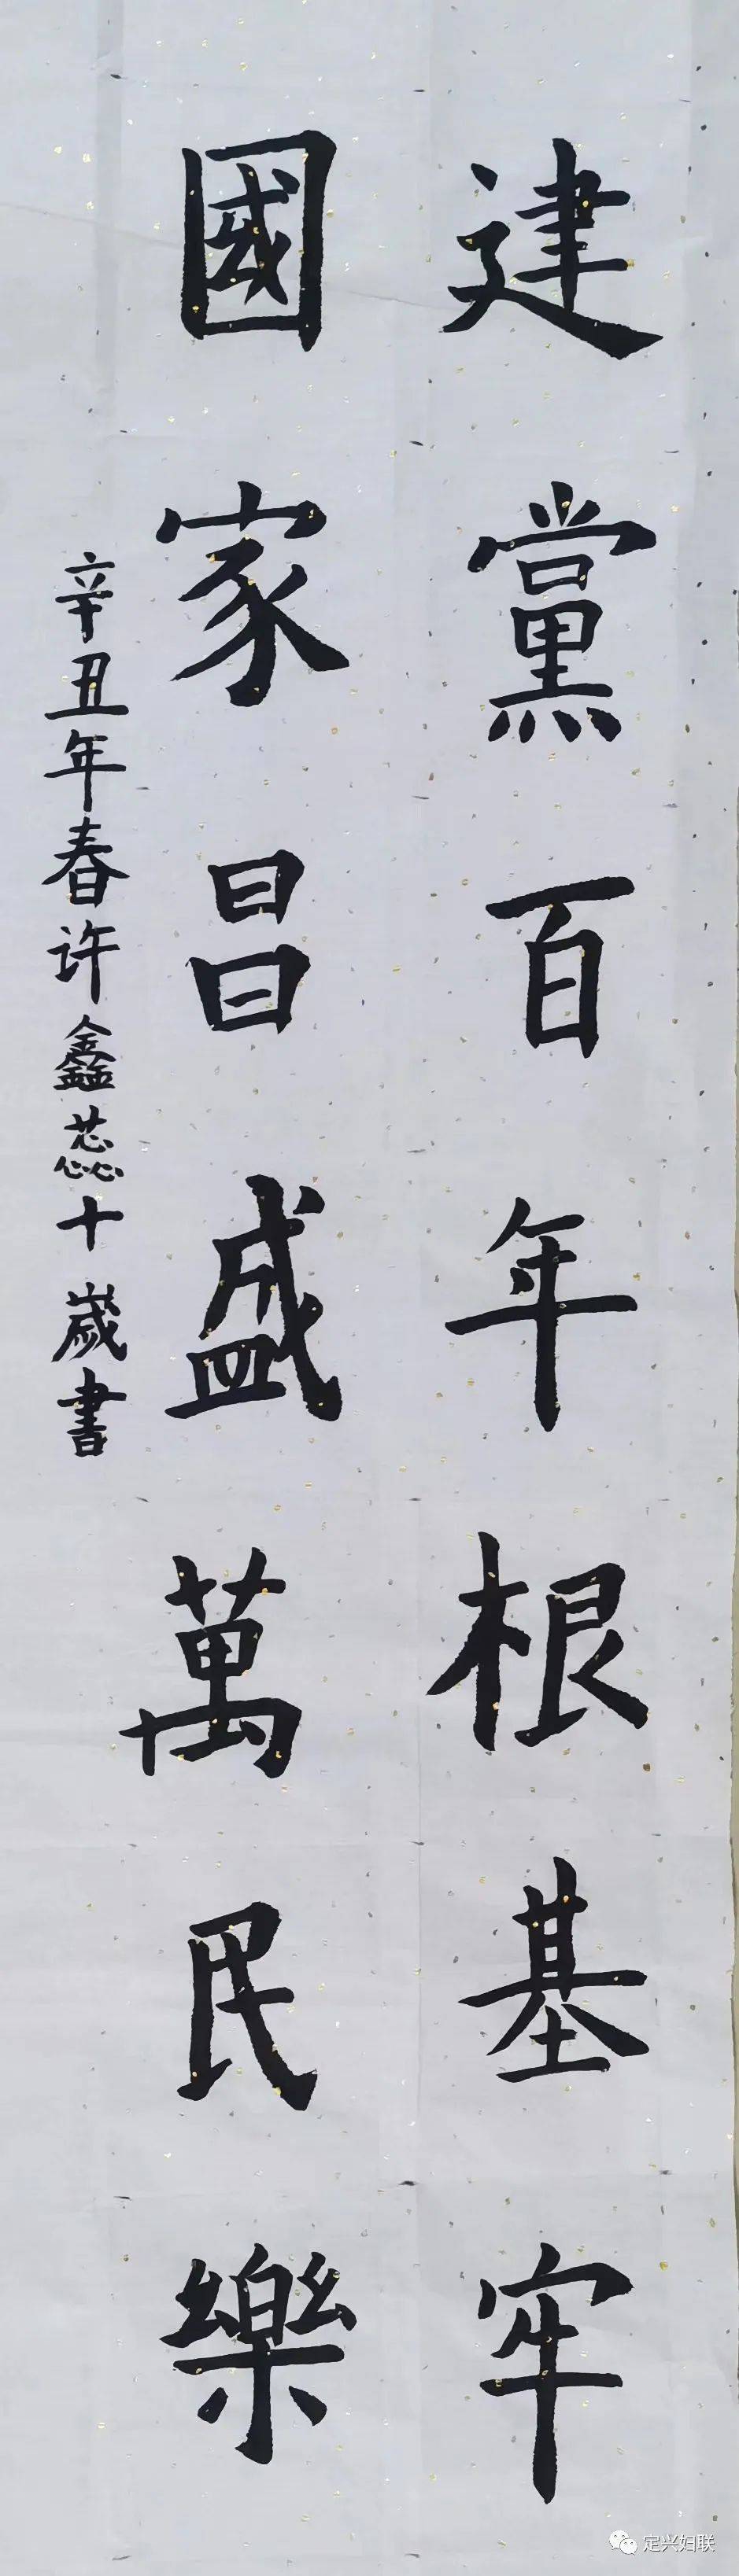 建黨百年根基牢
國家昌盛萬民樂
辛丑年春许鑫蕊十歲書
定兴妇联